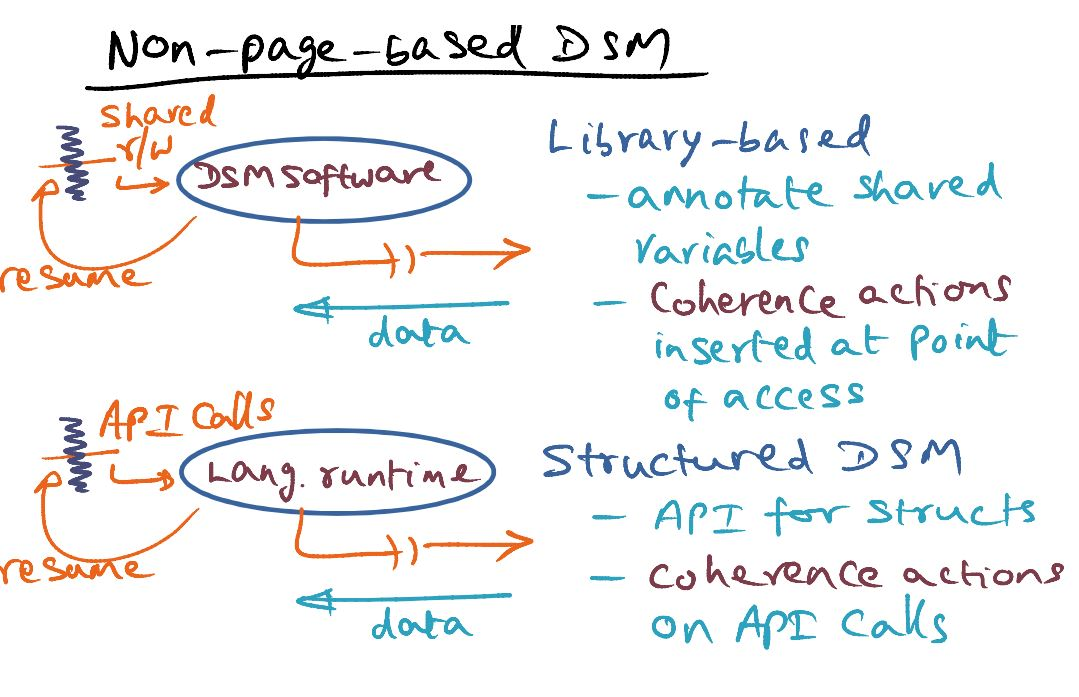 Non-page-based DSM
shared
r/w
DSM software
resume
data
Library-based
- annotate shared
variables
- Coherence actions
inserted at point
of access
API calls
Lang. runtime
resume
data
Structured DSM
- API for structs
- coherence actions
on API calls